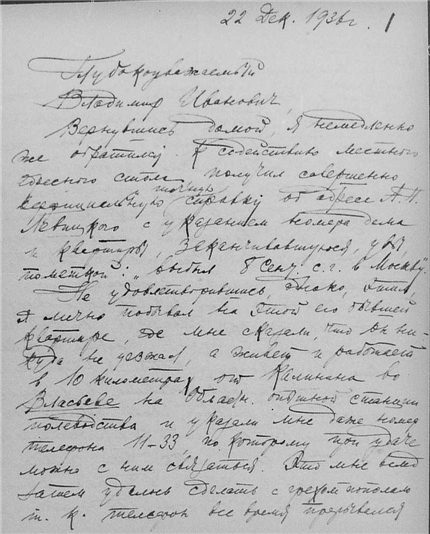 22 Дек. 1936 г. 1
Глубокоуважаемый
Владимир Иванович,
Вернувшись домой, я немедленно
же обратился к содействию местного
адресного стола, получил совершенно
точную справку об адресе А. П.
Левицкого с указанием номера дома
и квартиры, заканчивавшуюся, увы,
пометкой: „выбыл 8 сент. с. г. в Москву".
Не удовлетворившись, однако, этим,
я лично побывал на этой его бывшей
квартире, где мне сказали, что он ни-
куда не уезжал, а живет и работает
в 10 километрах от Калинина во
Власьеве на Областн. опытной станции
полеводства и указали мне даже номер
телефона 11-33, по которому при удаче
можно с ним связаться. Это мне
затем удалось сделать с грехом пополам
т. к. телефон все время прерывался